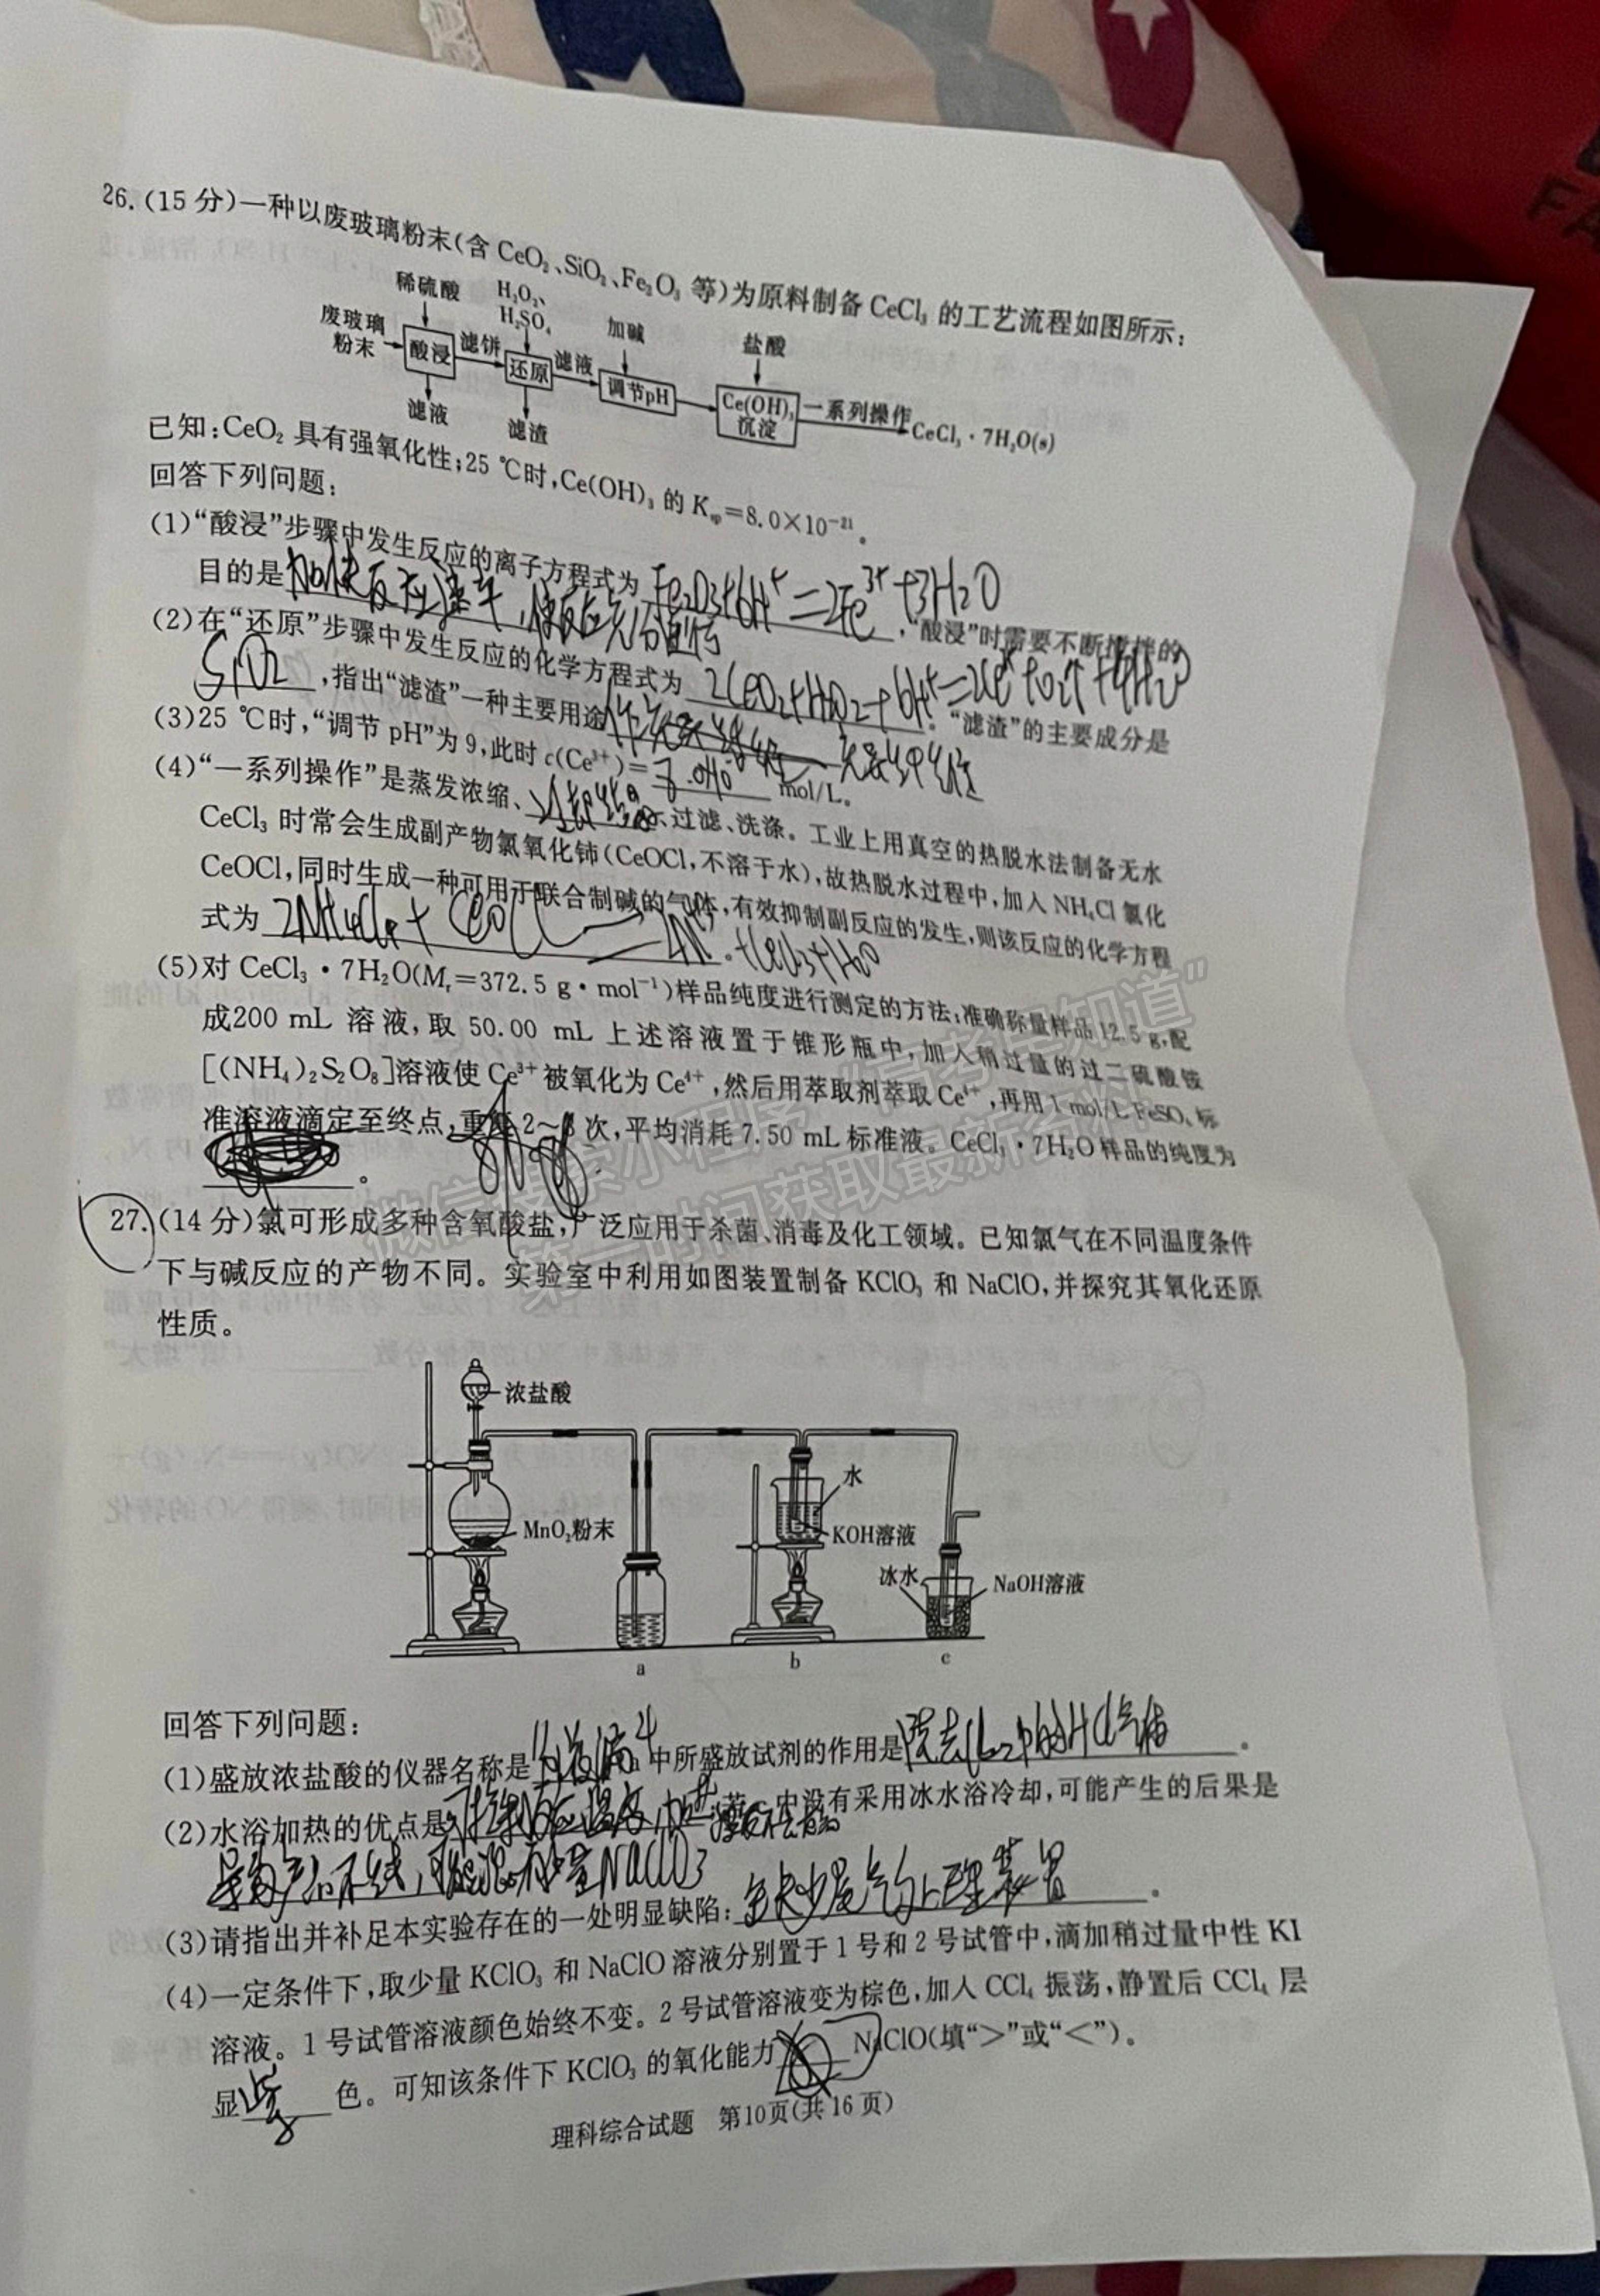 26.(15分)一种以废玻璃粉末(含 CeO₂、SiO₂、Fe₂O₃ 等)为原料制备 CeCl₃ 的工艺流程如图所示:
稀硫酸 H₂O₂、H₂SO₄ 加碱 盐酸
废玻璃粉末 酸浸 滤饼 还原 滤液 调节pH Ce(OH)₃沉淀 一系列操作 CeCl₃·7H₂O(s)
滤液 滤渣
已知:CeO₂ 具有强氧化性;25 ℃时,Ce(OH)₃ 的 Ksp=8.0×10⁻²¹。
回答下列问题:
(1)“酸浸”步骤中发生反应的离子方程式为 Fe₂O₃+6H⁺=2Fe³⁺+3H₂O ,“酸浸”时需要不断搅拌的
目的是 加快反应速率,使反应充分进行
(2)在“还原”步骤中发生反应的化学方程式为 2CeO₂+H₂O₂+6H⁺= 。“滤渣”的主要成分是
SiO₂ ,指出“滤渣”一种主要用途
(3)25 ℃时,“调节 pH”为9,此时 c(Ce³⁺)= mol/L。
(4)“一系列操作”是蒸发浓缩、 、过滤、洗涤。工业上用真空的热脱水法制备无水
CeCl₃ 时常会生成副产物氯氧化铈(CeOCl,不溶于水),故热脱水过程中,加入 NH₄Cl 氯化
CeOCl,同时生成一种可用于联合制碱的气体,有效抑制副反应的发生,则该反应的化学方程
式为 2NH₄Cl+CeOCl +CeCl₃+H₂O
(5)对 CeCl₃·7H₂O(Mᵣ=372.5 g·mol⁻¹)样品纯度进行测定的方法:准确称量样品 12.5 g,配
成200 mL 溶液,取 50.00 mL 上述溶液置于锥形瓶中,加入稍过量的过二硫酸铵
[(NH₄)₂S₂O₈]溶液使 Ce³⁺ 被氧化为 Ce⁴⁺,然后用萃取剂萃取 Ce⁴⁺,再用 1 mol/L FeSO₄ 标
准溶液滴定至终点,重复 2～3 次,平均消耗 7.50 mL 标准液。CeCl₃·7H₂O 样品的纯度为
。
微信搜索小程序“高考早知道”
第一时间获取最新资料
27.(14分)氯可形成多种含氧酸盐,广泛应用于杀菌、消毒及化工领域。已知氯气在不同温度条件
下与碱反应的产物不同。实验室中利用如图装置制备 KClO₃ 和 NaClO,并探究其氧化还原
性质。
浓盐酸
水
MnO₂粉末 KOH溶液
冰水 NaOH溶液
a b c
回答下列问题:
(1)盛放浓盐酸的仪器名称是 分液漏斗 中所盛放试剂的作用是 除去Cl₂中的HCl气体 。
(2)水浴加热的优点是 ;若 c 中没有采用冰水浴冷却,可能产生的后果是
导致产品不纯,可能混有少量NaClO₃
(3)请指出并补足本实验存在的一处明显缺陷: 缺少尾气处理装置 。
(4)一定条件下,取少量 KClO₃ 和 NaClO 溶液分别置于 1 号和 2 号试管中,滴加稍过量中性 KI
溶液。1 号试管溶液颜色始终不变。2 号试管溶液变为棕色,加入 CCl₄ 振荡,静置后 CCl₄ 层
显 紫 色。可知该条件下 KClO₃ 的氧化能力 NaClO(填“>”或“<”)。
理科综合试题 第10页(共16页)